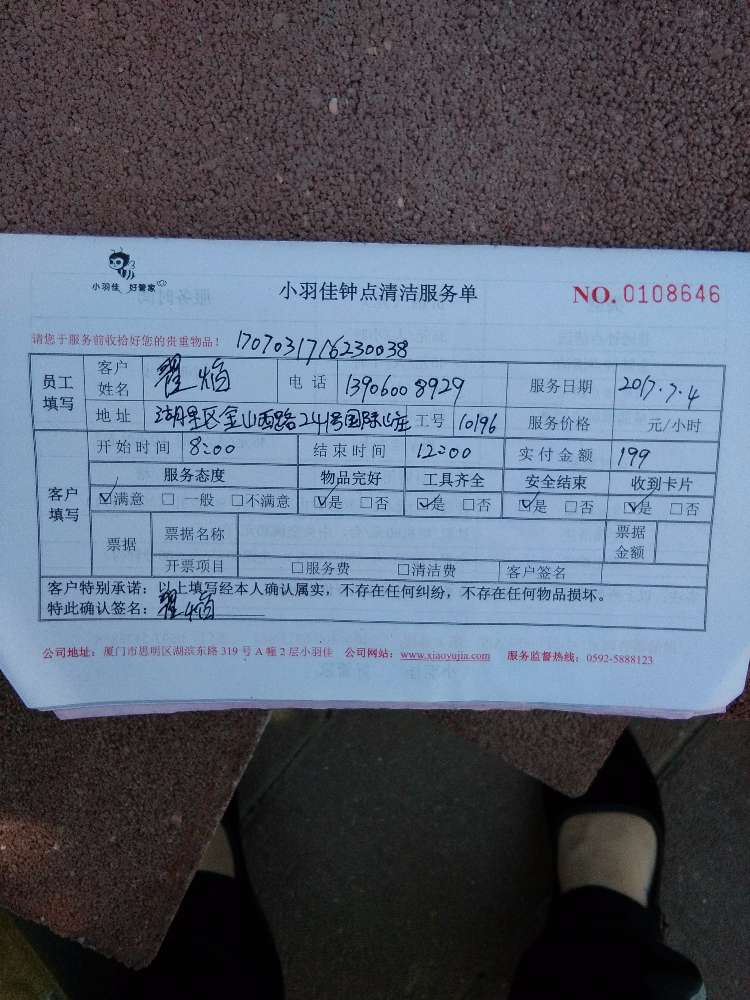 小羽佳 好管家
小羽佳钟点清洁服务单
NO. 0108646
请您于服务前收拾好您的贵重物品！ 1707031716230038
员工填写 客户姓名 翟 电话 13906008929 服务日期 2017.7.4
地址 湖里区金山西路241号国际山庄 工号 10196 服务价格 元/小时
客户填写 开始时间 8:00 结束时间 12:00 实付金额 199
服务态度 物品完好 工具齐全 安全结束 收到卡片
☑满意 □一般 □不满意 ☑是 □否 ☑是 □否 ☑是 □否 ☑是 □否
票据 票据名称 票据金额
开票项目 □服务费 □清洁费 客户签名
客户特别承诺：以上填写经本人确认属实，不存在任何纠纷，不存在任何物品损坏。
特此确认签名：翟
公司地址：厦门市思明区湖滨东路 319 号 A 幢 2 层小羽佳 公司网站：www.xiaoyujia.com 服务监督热线：0592-5888123